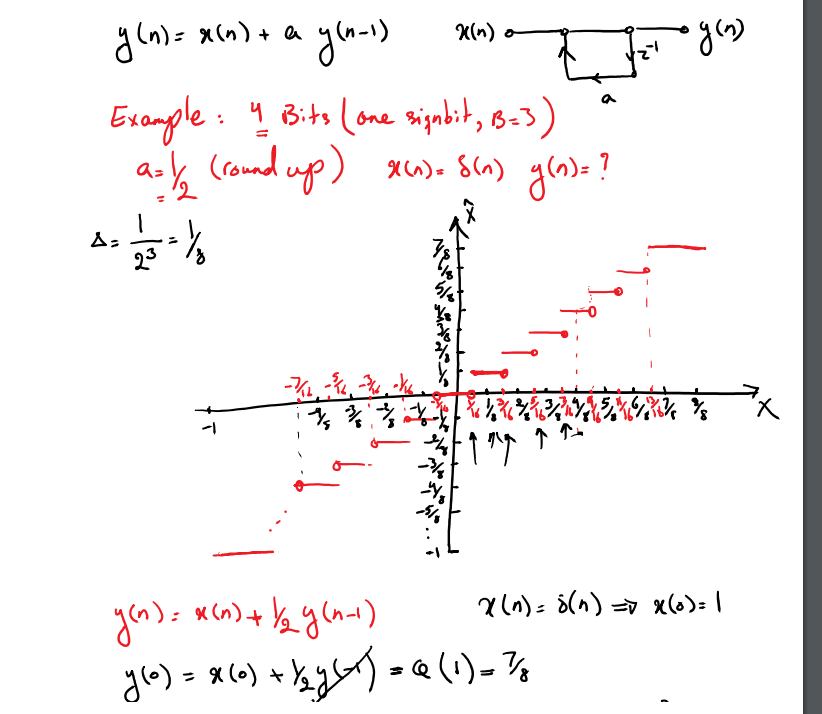 y(n) = x(n) + a y(n-1) x(n) z⁻¹ y(n)
a
Example : 4 Bits (one signbit, B=3)
a = 1/2 (round up) x(n) = δ(n) y(n) = ?
Δ = 1/2³ = 1/8
x̂
7/8
6/8
5/8
4/8
3/8
2/8
1/8
-7/16 -5/16 -3/16 -1/16
-1 -4/8 -3/8 -2/8 -1/8 1/16 1/8 3/16 2/8 5/16 3/8 7/16 4/8 9/16 5/8 11/16 6/8 13/16 7/8 X
-1/8
-2/8
-3/8
-4/8
-5/8
-1
y(n) = x(n) + 1/2 y(n-1) x(n) = δ(n) ⇒ x(0) = 1
y(0) = x(0) + 1/2 y(-1) = Q(1) = 7/8